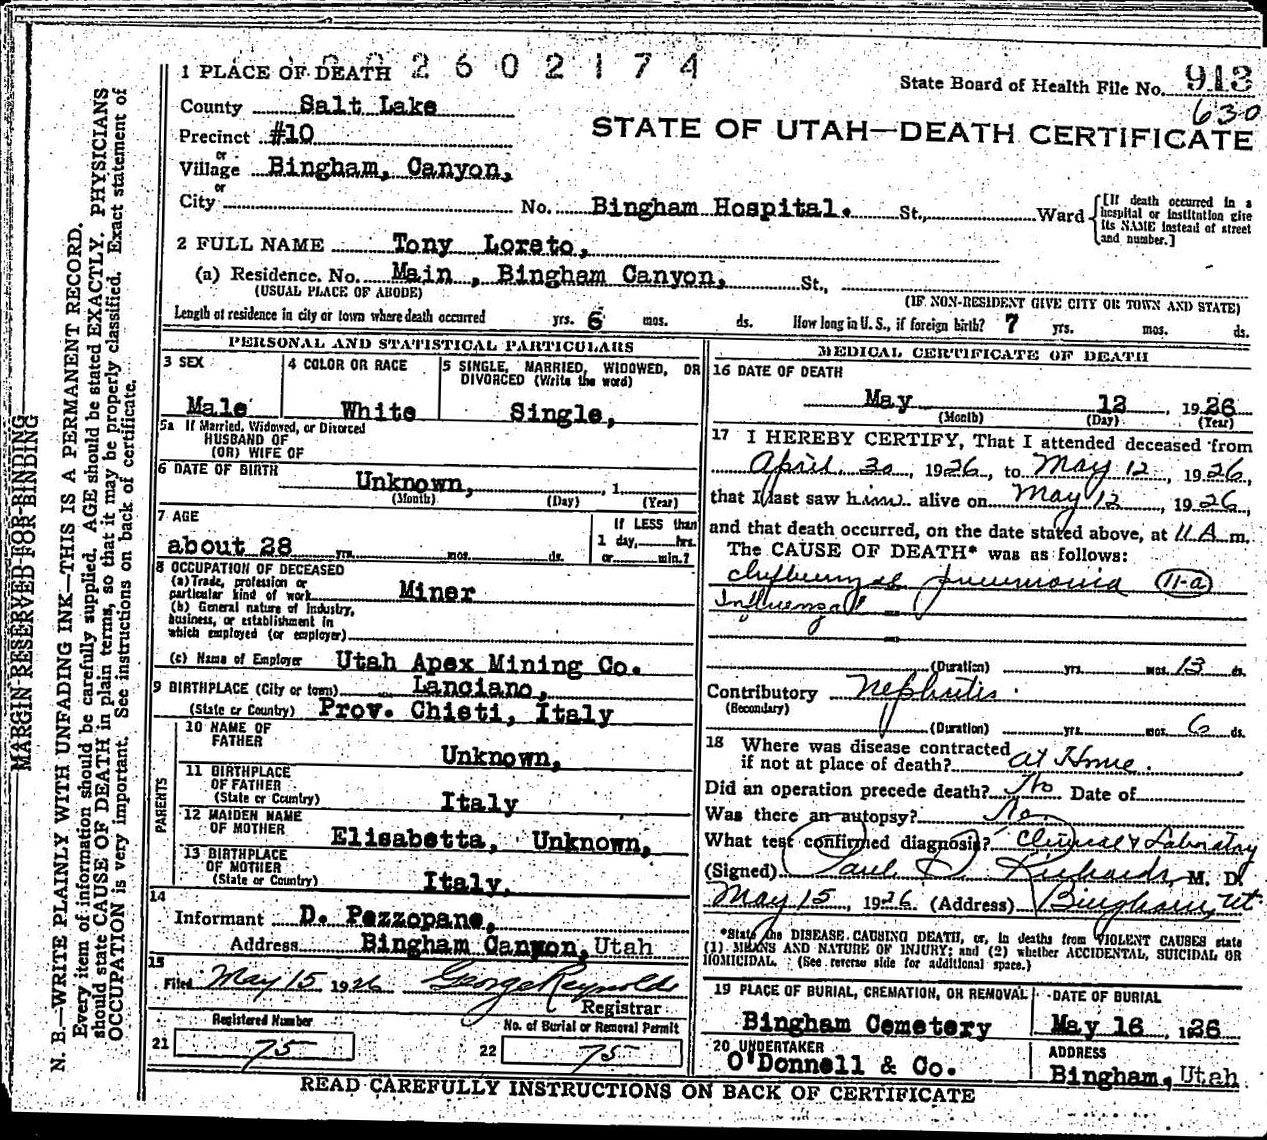 2602174
State Board of Health File No. 913
630
1 PLACE OF DEATH
County Salt Lake
STATE OF UTAH—DEATH CERTIFICATE
Precinct #10
or
Village Bingham, Canyon,
or
City No. Bingham Hospital. St., Ward
[If death occurred in a hospital or institution give its NAME instead of street and number.]
2 FULL NAME Tony Loreto,
(a) Residence. No. Main , Bingham Canyon, St.,
(USUAL PLACE OF ABODE) (IF NON-RESIDENT GIVE CITY OR TOWN AND STATE)
Length of residence in city or town where death occurred yrs. 6 mos. ds. How long in U. S., if foreign birth? 7 yrs. mos. ds.
PERSONAL AND STATISTICAL PARTICULARS
3 SEX 4 COLOR OR RACE 5 SINGLE, MARRIED, WIDOWED, OR
DIVORCED (Write the word)
Male White Single,
5a If Married, Widowed, or Divorced
HUSBAND OF
(OR) WIFE OF
6 DATE OF BIRTH
Unknown, , 1
(Month) (Day) (Year)
7 AGE If LESS than
about 28 yrs. mos. ds. 1 day, hrs.
or min.?
8 OCCUPATION OF DECEASED
(a) Trade, profession or
particular kind of work Miner
(b) General nature of Industry,
business, or establishment in
which employed (or employer)
(c) Name of Employer Utah Apex Mining Co.
9 BIRTHPLACE (City or town) Lanciano,
(State or Country) Prov. Chieti, Italy
PARENTS
10 NAME OF
FATHER
Unknown,
11 BIRTHPLACE
OF FATHER
(State or Country) Italy
12 MAIDEN NAME
OF MOTHER Elisabetta, Unknown,
13 BIRTHPLACE
OF MOTHER
(State or Country) Italy,
14
Informant D. Pezzopane,
Address Bingham Canyon, Utah
15
Filed May 15 1926 George Reynolds
Registrar
Registered Number No. of Burial or Removal Permit
21 75 22 75
MEDICAL CERTIFICATE OF DEATH
16 DATE OF DEATH
May 12 , 1926
(Month) (Day) (Year)
17 I HEREBY CERTIFY, That I attended deceased from
April 30, 1926, to May 12, 1926,
that I last saw him alive on May 12, 1926,
and that death occurred, on the date stated above, at 11 A m.
The CAUSE OF DEATH* was as follows:
pneumonia 11-a
Influenzal
(Duration) yrs. mos. 13 ds.
Contributory Nephritis.
(Secondary)
(Duration) yrs. mos. 6 ds.
18 Where was disease contracted
if not at place of death? at Home.
Did an operation precede death? No Date of
Was there an autopsy? No.
What test confirmed diagnosis? Clinical & Laboratory
(Signed) Paul S. Richards, M. D.
May 15, 1926. (Address) Bingham, Ut.
*State the DISEASE CAUSING DEATH, or, in deaths from VIOLENT CAUSES state
(1) MEANS AND NATURE OF INJURY; and (2) whether ACCIDENTAL, SUICIDAL OR
HOMICIDAL. (See reverse side for additional space.)
19 PLACE OF BURIAL, CREMATION, OR REMOVAL DATE OF BURIAL
Bingham Cemetery May 16 , 1926
20 UNDERTAKER ADDRESS
O'Donnell & Co. Bingham, Utah
READ CAREFULLY INSTRUCTIONS ON BACK OF CERTIFICATE
MARGIN RESERVED FOR BINDING
N. B.—WRITE PLAINLY WITH UNFADING INK—THIS IS A PERMANENT RECORD.
Every item of information should be carefully supplied. AGE should be stated EXACTLY. PHYSICIANS
should state CAUSE OF DEATH in plain terms, so that it may be properly classified. Exact statement of
OCCUPATION is very important. See instructions on back of certificate.